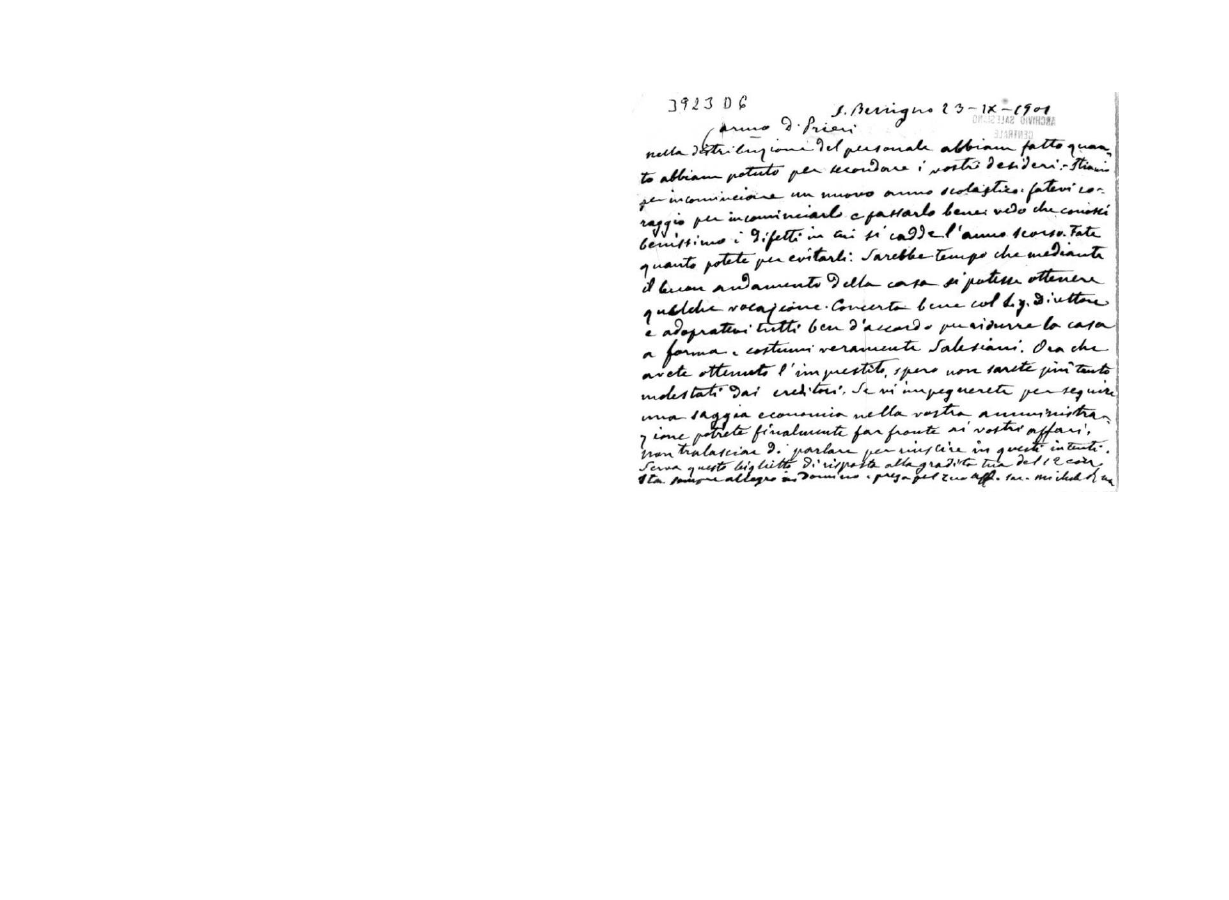 3923 D 6
S. Benigno 23-IX-1901
ARCHIVIO SALESIANO
CENTRALE
Carmo D. Prieri
nella distribuzione del personale abbiam fatto quan-
to abbiam potuto per secondare i vostri desideri. Stiamo
per incominciare un nuovo anno scolastico. fatevi co-
raggio per incominciarlo e passarlo bene: vedo che conosci
benissimo i difetti in cui si cadde l'anno scorso. Fate
quanto potete per evitarli: Sarebbe tempo che mediante
il buon andamento della casa si potesse ottenere
qualche vocazione. Concerta bene col Sig. Direttore
e adopratevi tutti ben d'accordo per ridurre la casa
a forma e costumi veramente Salesiani. Ora che
avete ottenuto l'imprestito, spero non sarete più tanto
molestati dai creditori. Se vi impegnerete per seguire
una saggia economia nella vostra amministra-
zione potrete finalmente far fronte ai vostri affari.
non tralasciar di parlare per riuscire in questi intenti.
Serva questo biglietto di risposta alla gradita tua del 12 corr.
Sta sempre allegro in Domino e prega pel tuo aff. sac. Michele Rua